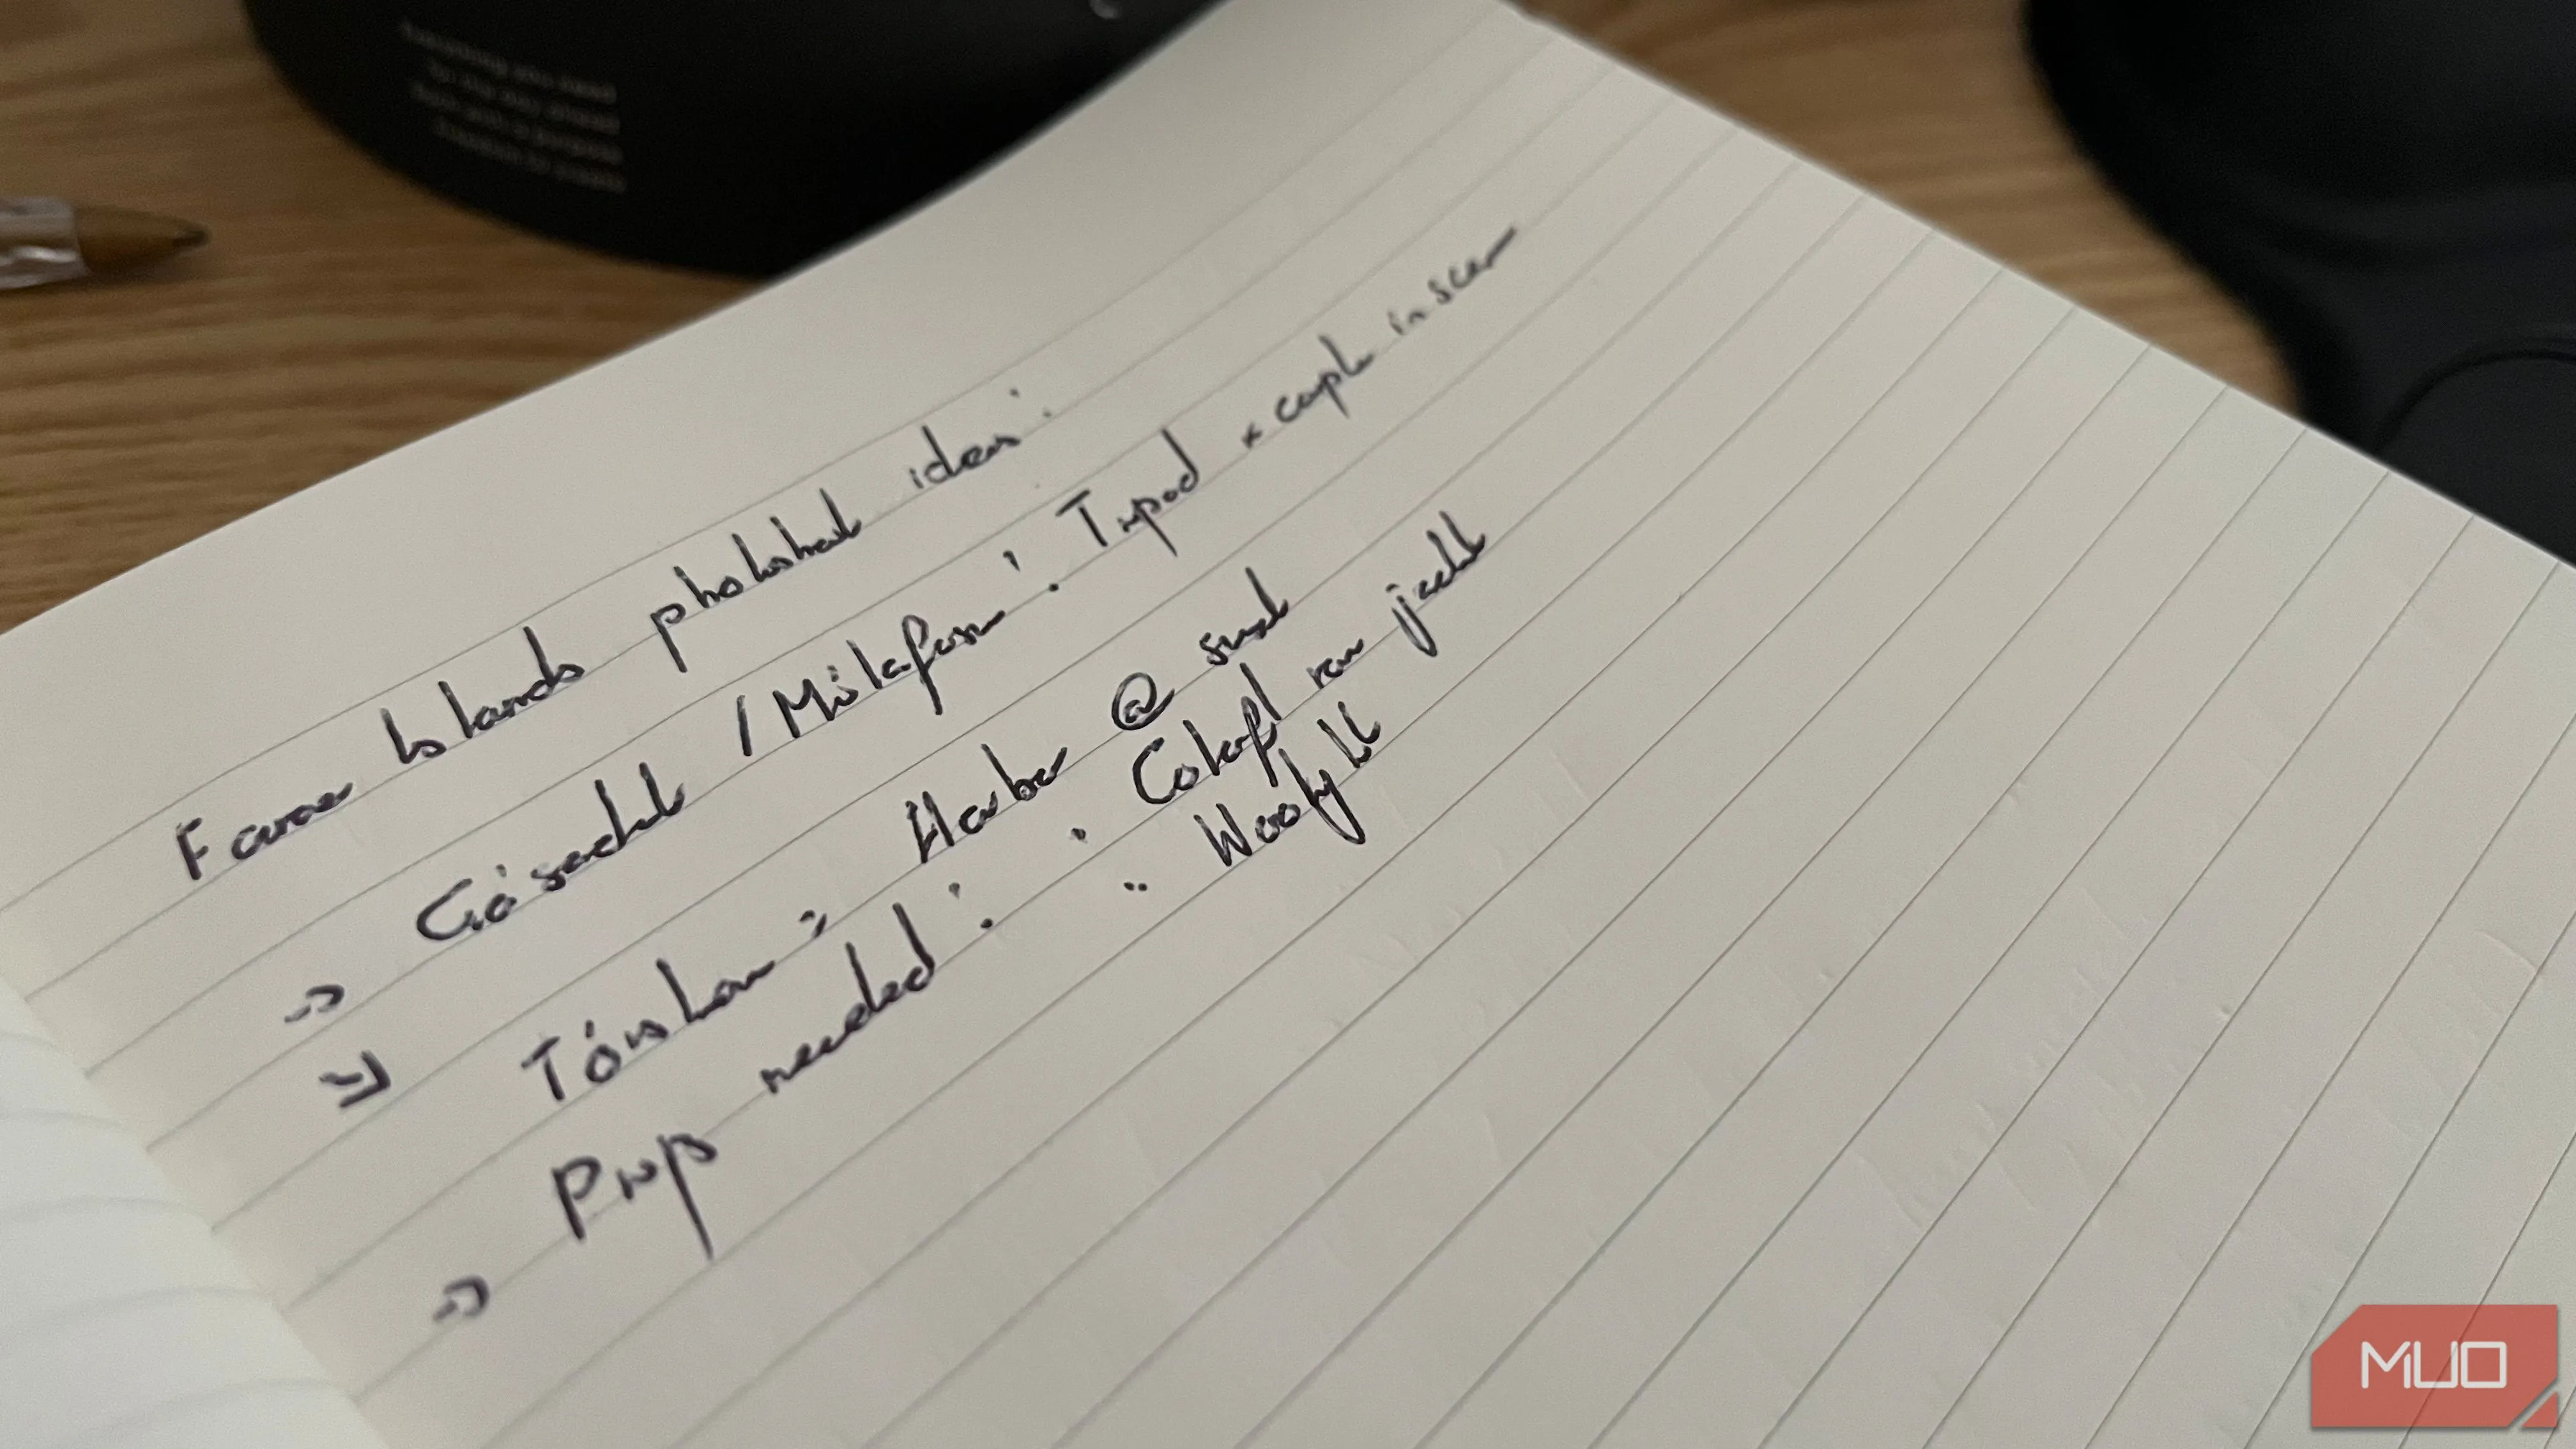 Faroe Islands photoshoot ideas:
→ Gásadalur / Múlafossur: Tripod + couple in scene
→ Tórshavn: Harbour @ sunset
→ Props needed: · Colorful rain jacket
·· Wooly hat
MUO